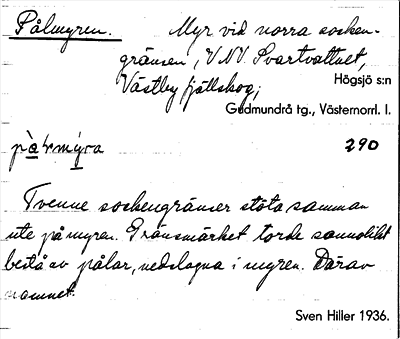 Pålmyren. Myr vid norra socken-
gränsen, V.NV. Svartvattnet,
Västby fjällskog;
Högsjö s:n
Gudmundrå tg., Västernorrl. l.
290
Tvenne sockengränser stöta samman
ute på myren. Gränsmärket torde sannolikt
bestå av pålar, nedslagna i myren. Därav
namnet.
Sven Hiller 1936.